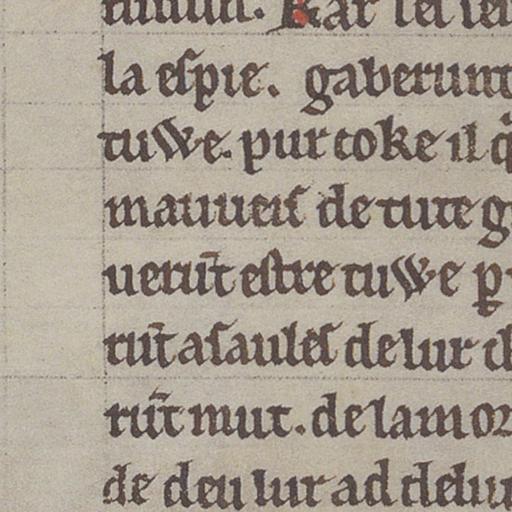 Kar lei
la espie. gaberunt
tuwe. pur coke il q̃
mauueis de tute g
uerũt estre tuwe p̱
rũt asaules de lur d
rũt mut. de lamor
de deu lur ad delu